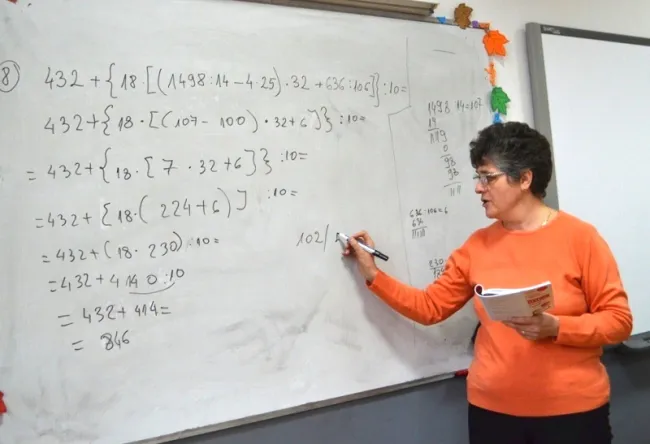 8
432 + {18 · [(1498 : 14 - 4 · 25) · 32 + 636 : 106]} : 10 =
432 + {18 · [(107 - 100) · 32 + 6]} : 10 =
= 432 + {18 · [7 · 32 + 6]} : 10 =
= 432 + {18 · (224 + 6)] : 10 =
= 432 + (18 · 230) : 10 =
= 432 + 4140 : 10
= 432 + 414 =
= 846
102/
1498 : 14 = 107
14
119
0
98
98
636 : 106 = 6
636
230